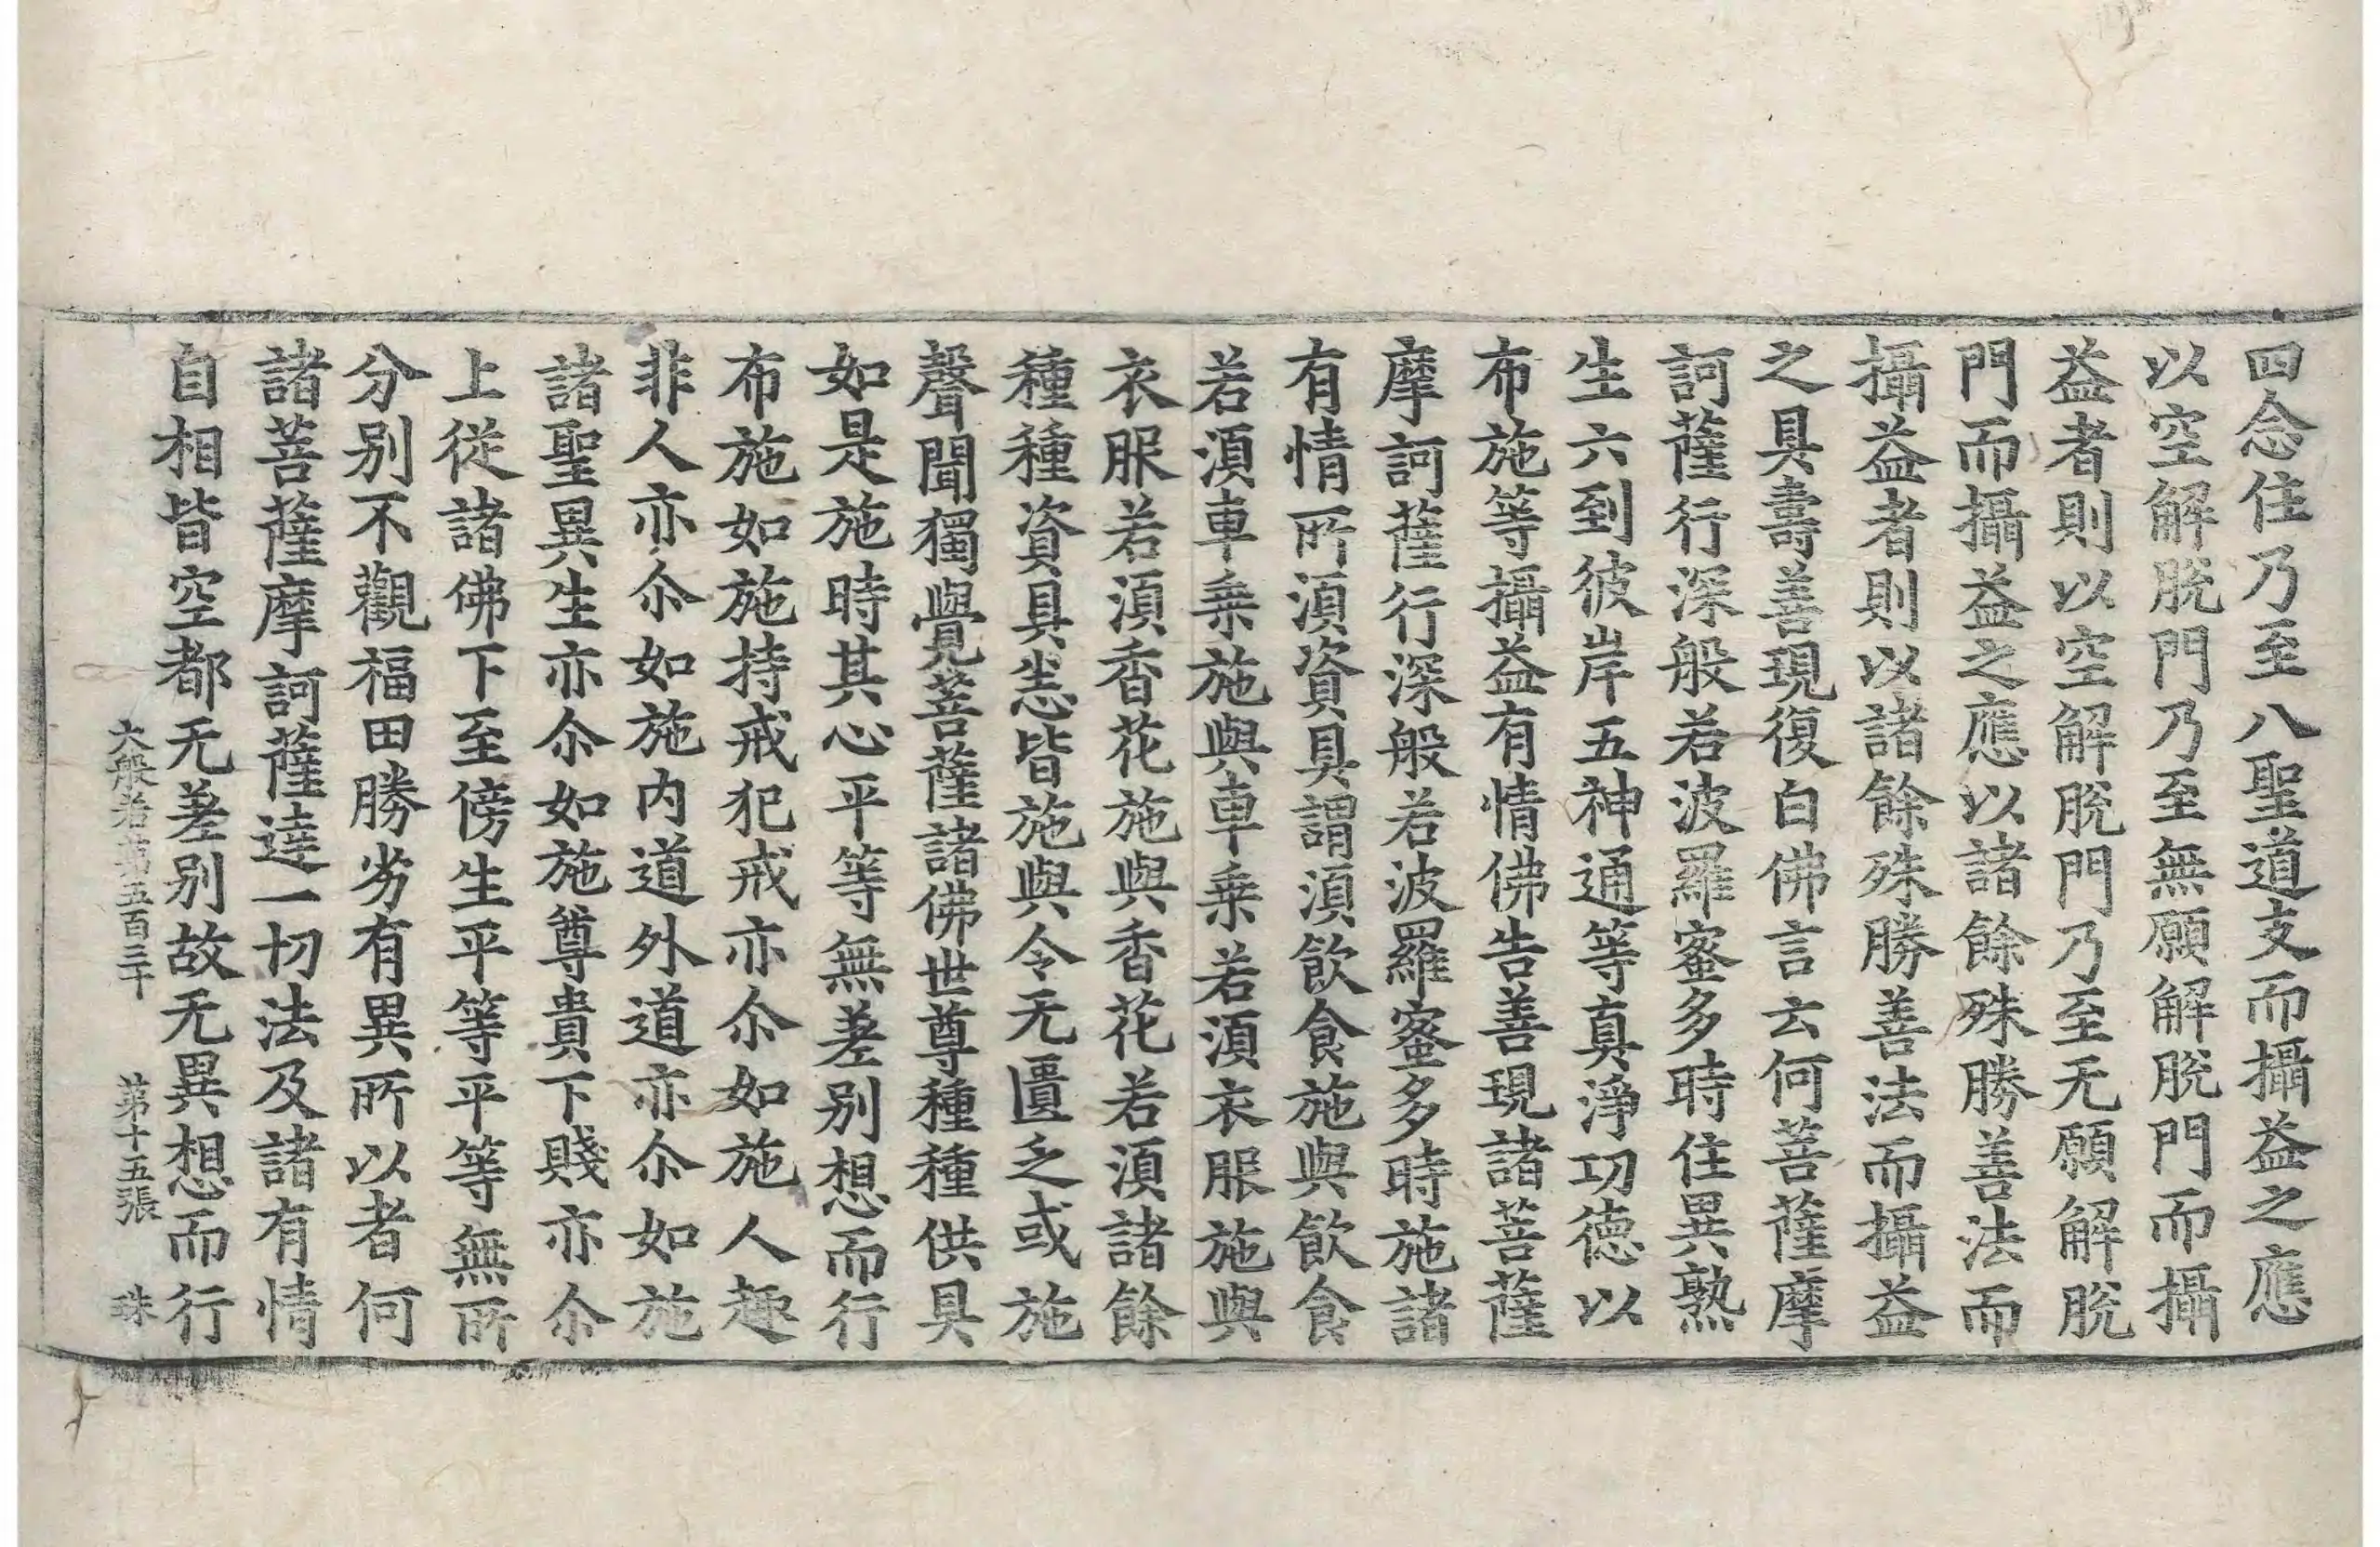 四念住乃至八聖道支而攝益之應
以空解脫門乃至無願解脫門而攝
益者則以空解脫門乃至无願解脫
門而攝益之應以諸餘殊勝善法而
攝益者則以諸餘殊勝善法而攝益
之具壽善現復白佛言云何菩薩摩
訶薩行深般若波羅蜜多時住異熟
生六到彼岸五神通等真淨功德以
布施等攝益有情佛告善現諸菩薩
摩訶薩行深般若波羅蜜多時施諸
有情所湏資具謂湏飲食施與飲食
若湏車乗施與車乗若湏衣服施與
衣服若湏香花施與香花若湏諸餘
種種資具悉皆施與令无匱乏或施
聲聞獨覺菩薩諸佛世尊種種供具
如是施時其心平等無差別想而行
布施如施持戒犯戒亦尒如施人趣
非人亦尒如施内道外道亦尒如施
諸聖異生亦尒如施尊貴下賤亦尒
上從諸佛下至傍生平等平等無所
分別不觀福田勝劣有異所以者何
諸菩薩摩訶薩達一切法及諸有情
自相皆空都无差別故无異想而行
大般若第五百三十 第十五張 珠